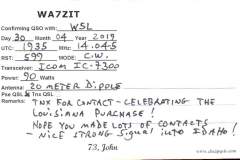 WA7ZIT
Confirming QSO with: W5L
Day 30 Month 04 Year 2019
UTC: 1935 MHz 14.045
RST: 599 MODE: C.W.
Transceiver: Icom IC-7300
Power: 90 Watts
Antenna: 20 METER DIPOLE
Pse QSL Tnx QSL
Remarks: TNX FOR CONTACT - CELEBRATING THE
LOUISIANA PURCHASE!
HOPE YOU MADE LOTS OF CONTACTS
- NICE STRONG SIGNAL INTO IDAHO!
73, John